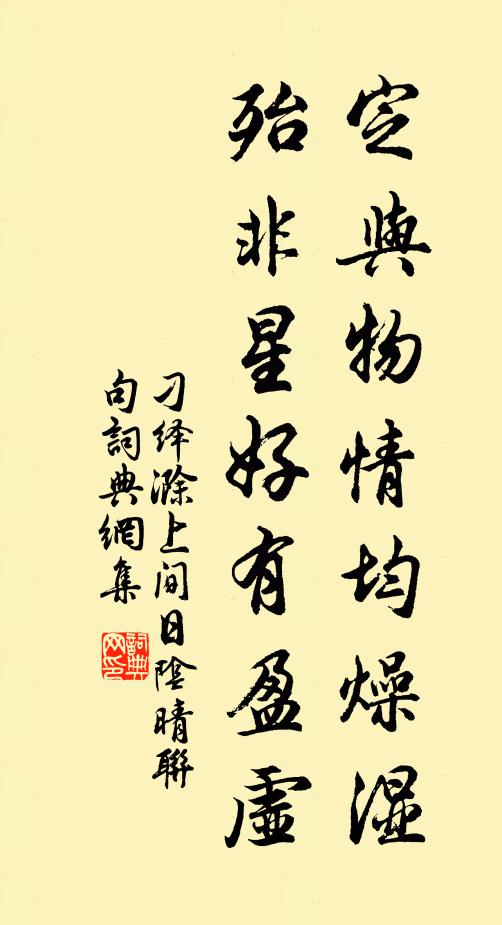 定與物情均燥湿
殆非星好有盈虛
刁绎滁上间日陰晴聯
句詞典網集
詞典
网印